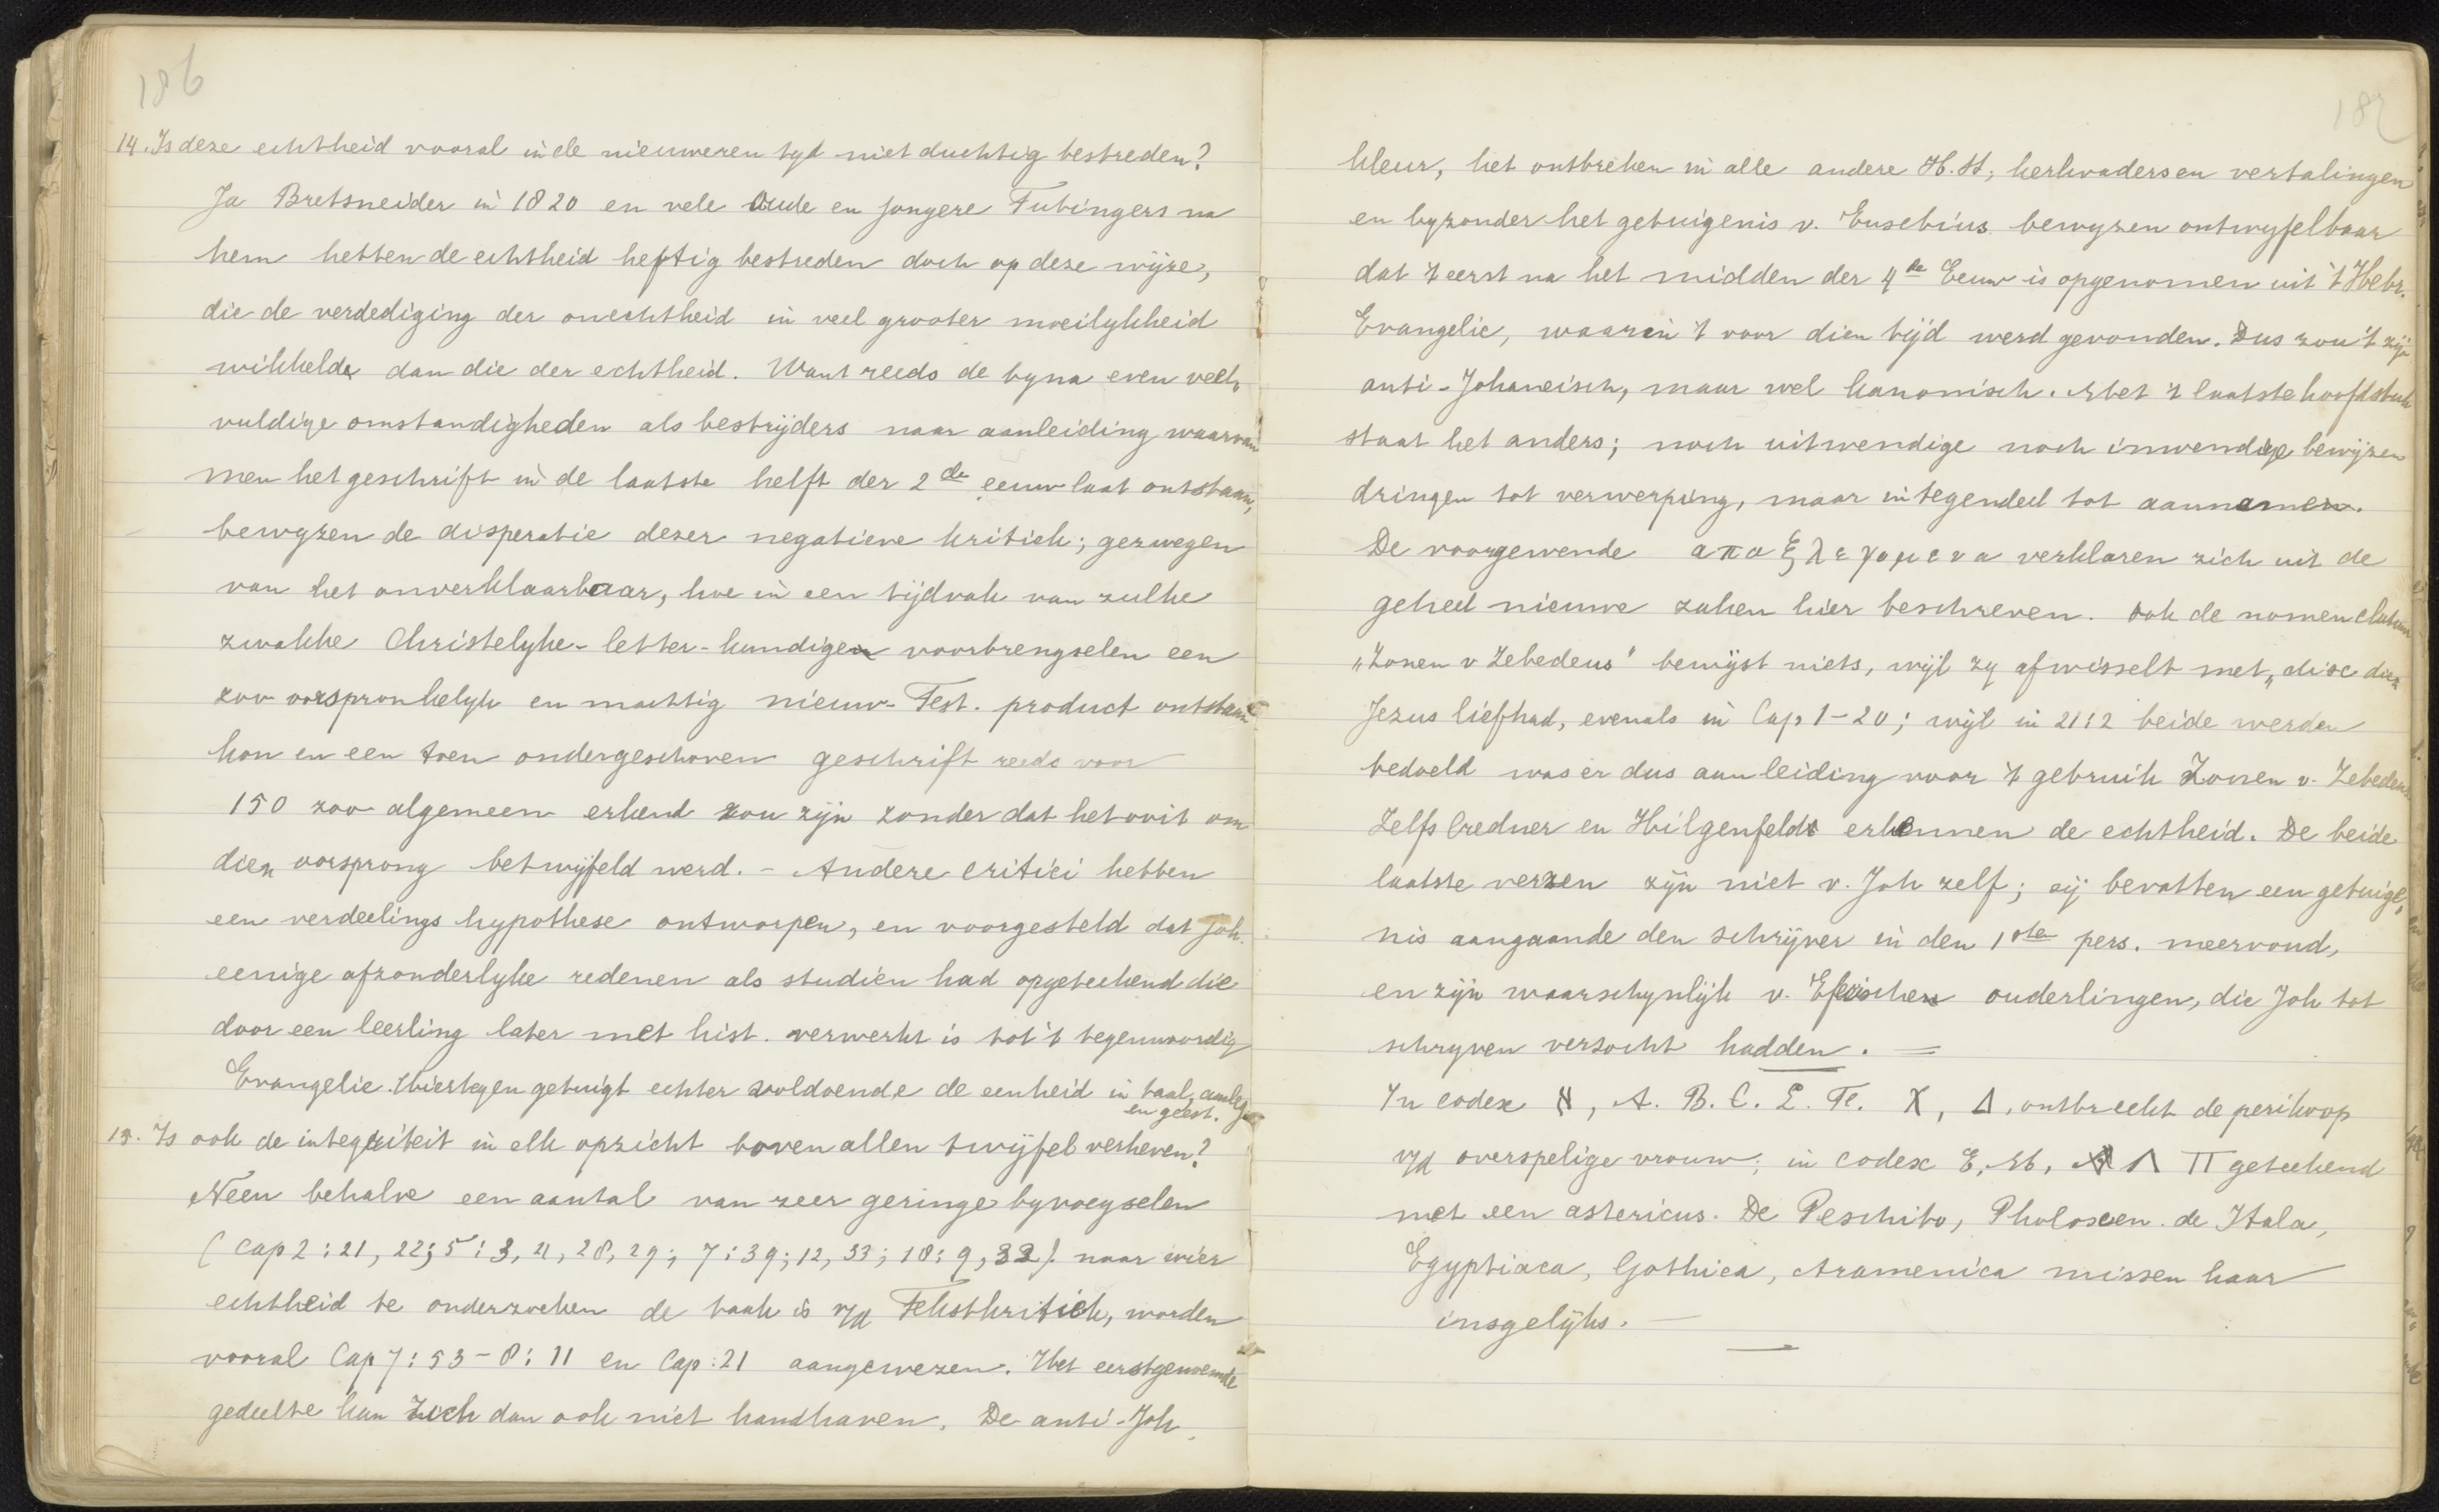 186
14. Is deze echtheid vooral in de nieuweren tyd niet duchtig bestreden?
Ja Bretsneider in 1820 en vele oude en jongere Tubingers na
hem hebben de echtheid heftig bestreden doch op deze wijze,
die de verdediging der onechtheid in veel grooter moeilykheid
wikkelde dan die der echtheid. Want reeds de byna even veel„
vuldige omstandigheden als bestrijders naar aanleiding waarvan
men het geschrift in de laatste helft der 2de eeuw laat ontstaan,
bewyzen de disperatie dezer negatieve kritiek; gezwegen
van het onverklaarbaar, hoe in een tijdvak van zulke
zwakke Christelyke-letter-kundigen voorbrengselen een
zoo oorspronkelyk en machtig nieuw-Test. product ontstaan
kon en een toen ondergeschoven geschrift reeds voor
150 zoo algemeen erkend zou zijn zonder dat het ooit om
dien oorsprong betwijfeld werd. - Andere critici hebben
een verdeelings hypothese ontworpen, en voorgesteld dat Joh.
eenige afzonderlyke redenen als studien had opgeteekend die
door een leerling later met hist. verwerkt is tot 't tegenwoordig
Evangelie. Hiertegen getuigt echter voldoende de eenheid in taal, aanleg
en geest.
15. Is ook de integriteit in elk opzicht boven allen twijfel verheven?
Neen behalve een aantal van zeer geringe byvoegselen
(Cap 2: 21, 22; 5: 3, 4, 28, 29; 7: 39; 12, 33; 18: 9, 32) naar wier
echtheid te onderzoeken de taak is v/d Tekstkritiek, worden
vooral Cap 7: 53 - 8: 11 en Cap: 21 aangewezen. Het eerstgenoemde
gedeelte kan zich dan ook niet handhaven. De anti-Joh.
187
kleur, het ontbreken in alle andere H.H; kerkvaders en vertalingen
en byzonder het getuigenis v. Eusebius bewyzen ontwyfelbaar
dat 't eerst na het midden der 4de Eeuw is opgenomen uit 't Hebr.
Evangelie, waarin 't voor dien tijd werd gevonden. Dus zou 't zijn
anti-Johaneisch, maar wel kanonisch. Met 't laatste hoofdstuk
staat het anders; noch uitwendige noch inwendige bewijzen
dringen tot verwerping, maar integendeel tot aannamen.
De voorgewende απαξ λεγομενα verklaren zich uit de
geheel nieuwe zaken hier beschreven. Ook de nomenclatuur
„Zonen v Zebedeus" bewijst niets, wijl zy afwisselt met „disc dien
Jezus liefhad, evenals in Cap 1-20; wijl in 21:2 beide werden
bedoeld was er dus aanleiding voor 't gebruik Zonen v. Zebedeus
Zelfs Credner en Hilgenfeldt erkennen de echtheid. De beide
laatste verzen zijn niet v. Joh zelf; zij bevatten een getuige„
nis aangaande den schrijver in den 1sten pers. meervoud,
en zijn waarschynlijk v. Efeischen ouderlingen, die Joh tot
schryven versocht hadden. =
In codex א, A. B. C. L. T. X, Δ, ontbreekt de perikoop
v/d overspelige vrouw; in codex E, M, Λ Π geteekend
met een astericus. De Peschito, Philoxen. de Itala,
Egyptiaca, Gothica, Aramenica missen haar
insgelijks. -